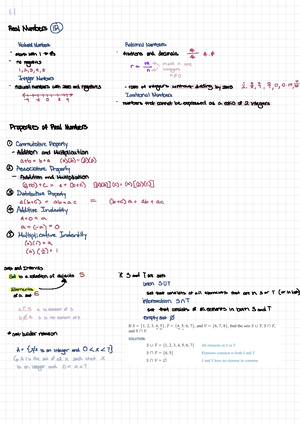 1.1
Real Numbers ℝ
Natural Numbers
- starts with 1 → ∞
- no negatives
1, 2, 3, 4, 5
Integer Numbers
- natural numbers with zero and negatives
-4 -2 0 2 4
Rational Numbers
- fractions and decimals
r = m/n
n≠0
- ratio of integers without dividing by zero
Irrational Numbers
- numbers that cannot be expressed as a ratio of 2 integers
Properties of Real Numbers
① Commutative Property
- Addition and Multiplication
a+b = b+a (a)(b) = (b)(a)
② Associative Property
- Addition and Multiplication
(a+b)+c = a+(b+c) [(a)(b)](c) = (a)[(b)(c)]
③ Distributive Property
a(b+c) = ab+ac = (b+c)a = ab+ac
④ Additive Indentity
a+0 = a
a+(-a) = 0
⑤ Multiplicative Indentity
(a)(1) = a
a(1/a) = 1
Sets and Intervals
Set is a collection of objects S
Elements
of a set
a∈S a is an element of S
b∉S b is not an element of S
* set-builder notation
A = {x|x is an integer and 0<x<7}
A is the set of all x such that x
is an integer and 0<x<7
If S and T are sets
union S∪T
set that consists of all elements that are in S or T (or in both)
intersection S∩T
set that consists of elements in both S and T
empty set ∅
If S = {1, 2, 3, 4, 5}, T = {4, 5, 6, 7}, and V = {6, 7, 8}, find the sets S ∪ T, S ∩ T,
and S ∩ V.
SOLUTION
S ∪ T = {1, 2, 3, 4, 5, 6, 7} All elements in S or T
S ∩ T = {4, 5} Elements common to both S and T
S ∩ V = ∅ S and V have no element in common